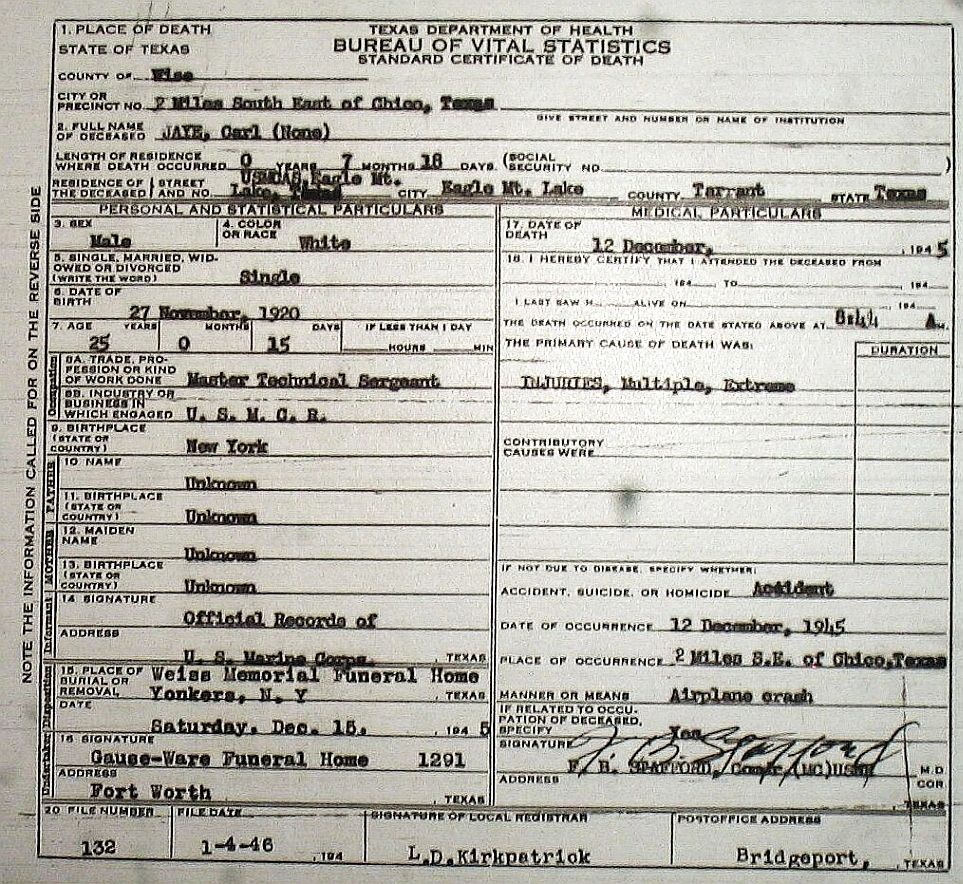 1. PLACE OF DEATH
STATE OF TEXAS
TEXAS DEPARTMENT OF HEALTH
BUREAU OF VITAL STATISTICS
STANDARD CERTIFICATE OF DEATH
COUNTY OF Wise
CITY OR
PRECINCT NO. 2 Miles South East of Chico, Texas
GIVE STREET AND NUMBER OR NAME OF INSTITUTION
2. FULL NAME
OF DECEASED JAYE, Carl (None)
LENGTH OF RESIDENCE
WHERE DEATH OCCURRED 0 YEARS 7 MONTHS 18 DAYS (SOCIAL
SECURITY NO. )
RESIDENCE OF THE DECEASED STREET AND NO. Eagle Mt.
Lake, Texas CITY Eagle Mt. Lake COUNTY Tarrant STATE Texas
NOTE THE INFORMATION CALLED FOR ON THE REVERSE SIDE
PERSONAL AND STATISTICAL PARTICULARS
3. SEX
Male
4. COLOR
OR RACE
White
5. SINGLE, MARRIED, WID-
OWED OR DIVORCED
(WRITE THE WORD) Single
6. DATE OF
BIRTH
27 November, 1920
7. AGE YEARS MONTHS DAYS IF LESS THAN 1 DAY
25 0 15 HOURS MIN
Occupation
8A. TRADE, PRO-
FESSION OR KIND
OF WORK DONE Master Technical Sergeant
8B. INDUSTRY OR
BUSINESS IN
WHICH ENGAGED U. S. M. C. R.
9. BIRTHPLACE
(STATE OR
COUNTRY) New York
FATHER
10 NAME
Unknown
11. BIRTHPLACE
(STATE OR
COUNTRY) Unknown
MOTHER
12. MAIDEN
NAME
Unknown
13. BIRTHPLACE
(STATE OR
COUNTRY) Unknown
Informant
14 SIGNATURE
Official Records of
ADDRESS
U. S. Marine Corps. TEXAS
Disposition
15. PLACE OF
BURIAL OR
REMOVAL Weiss Memorial Funeral Home
Yonkers, N. Y , TEXAS
DATE
Saturday, Dec. 15. , 194 5
Undertaker
16 SIGNATURE
Gause-Ware Funeral Home 1291
ADDRESS
Fort Worth , TEXAS
MEDICAL PARTICULARS
17. DATE OF
DEATH 12 December, , 194 5
18. I HEREBY CERTIFY THAT I ATTENDED THE DECEASED FROM
194 TO 194
I LAST SAW H ALIVE ON 194
THE DEATH OCCURRED ON THE DATE STATED ABOVE AT 8:44 A M.
THE PRIMARY CAUSE OF DEATH WAS:
DURATION
INJURIES, Multiple, Extreme
CONTRIBUTORY
CAUSES WERE
IF NOT DUE TO DISEASE, SPECIFY WHETHER:
ACCIDENT, SUICIDE, OR HOMICIDE Accident
DATE OF OCCURRENCE 12 December, 1945
PLACE OF OCCURRENCE 2 Miles S.E. of Chico, Texas
MANNER OR MEANS Airplane crash
IF RELATED TO OCCU-
PATION OF DECEASED,
SPECIFY Yes
SIGNATURE
SPAFFORD, Comdr (MC) USNR M.D.
COR.
ADDRESS
, TEXAS
20 FILE NUMBER FILE DATE SIGNATURE OF LOCAL REGISTRAR POSTOFFICE ADDRESS
132 1-4-46 , 194 L.D.Kirkpatrick Bridgeport, , TEXAS